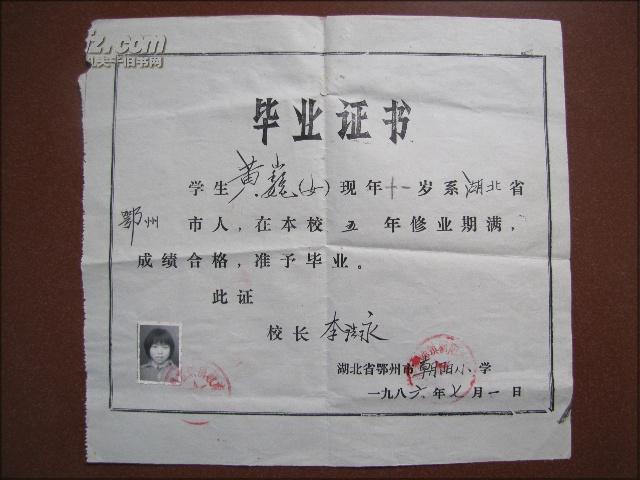 .com
毕业证书
学生黄巍(女)现年十一岁系湖北省
鄂州市人,在本校五年修业期满,
成绩合格,准予毕业。
此证
校长 李
湖北省鄂州市朝阳小学
一九八六年七月一日